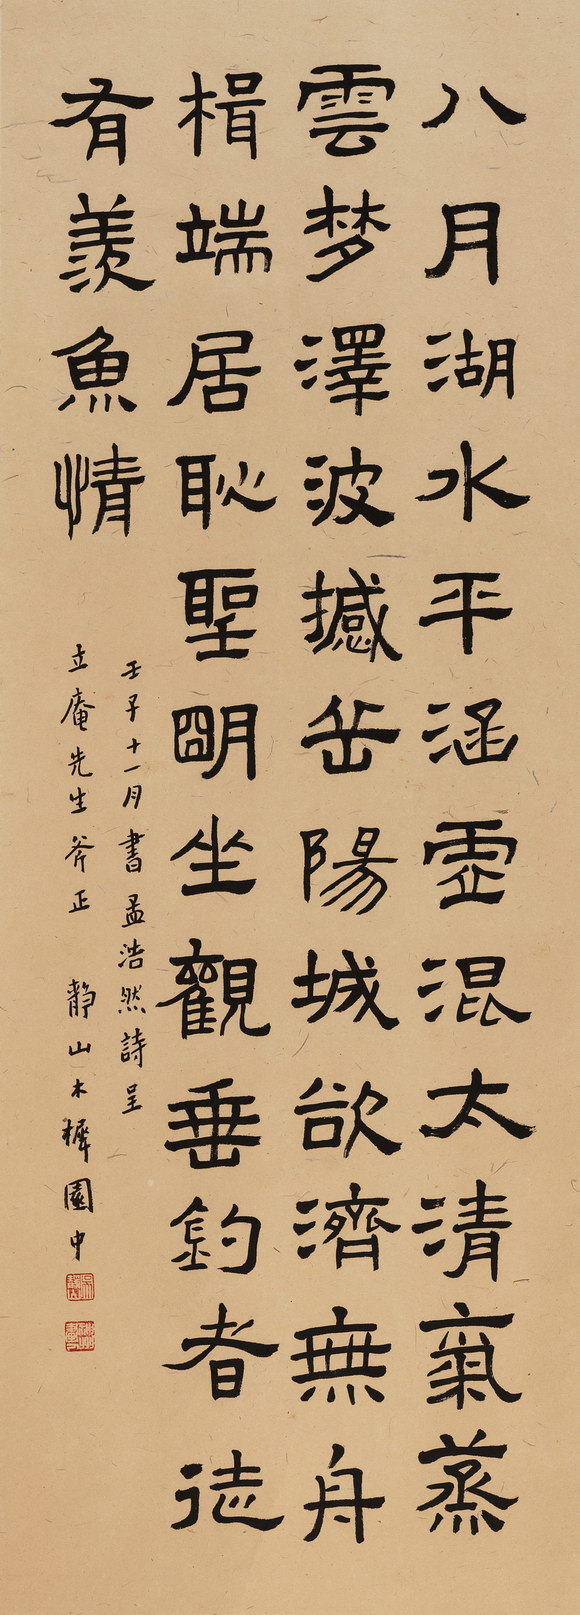 八月湖水平涵虛混太清氣蒸
雲梦澤波撼岳陽城欲濟無舟
楫端居恥聖明坐觀垂釣者徒
有羨魚情
壬子十一月書孟浩然詩呈
立庵先生斧正 靜山木樨園中